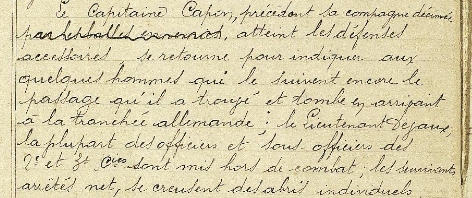 Le Capitaine Capin, précédant sa compagnie décimée
par les balles ennemies, atteint les défenses
accessoires se retourne pour indiquer aux
quelques hommes qui le suivent encore le
passage qu'il a trouvé et tombe en arrivant
à la tranchée allemande ; le lieutenant Dejaux,
la plupart des officiers et sous officiers des
2e et 3e Cies sont mis hors de combat ; les survivants
arrêtés net, se creusent des abris individuels